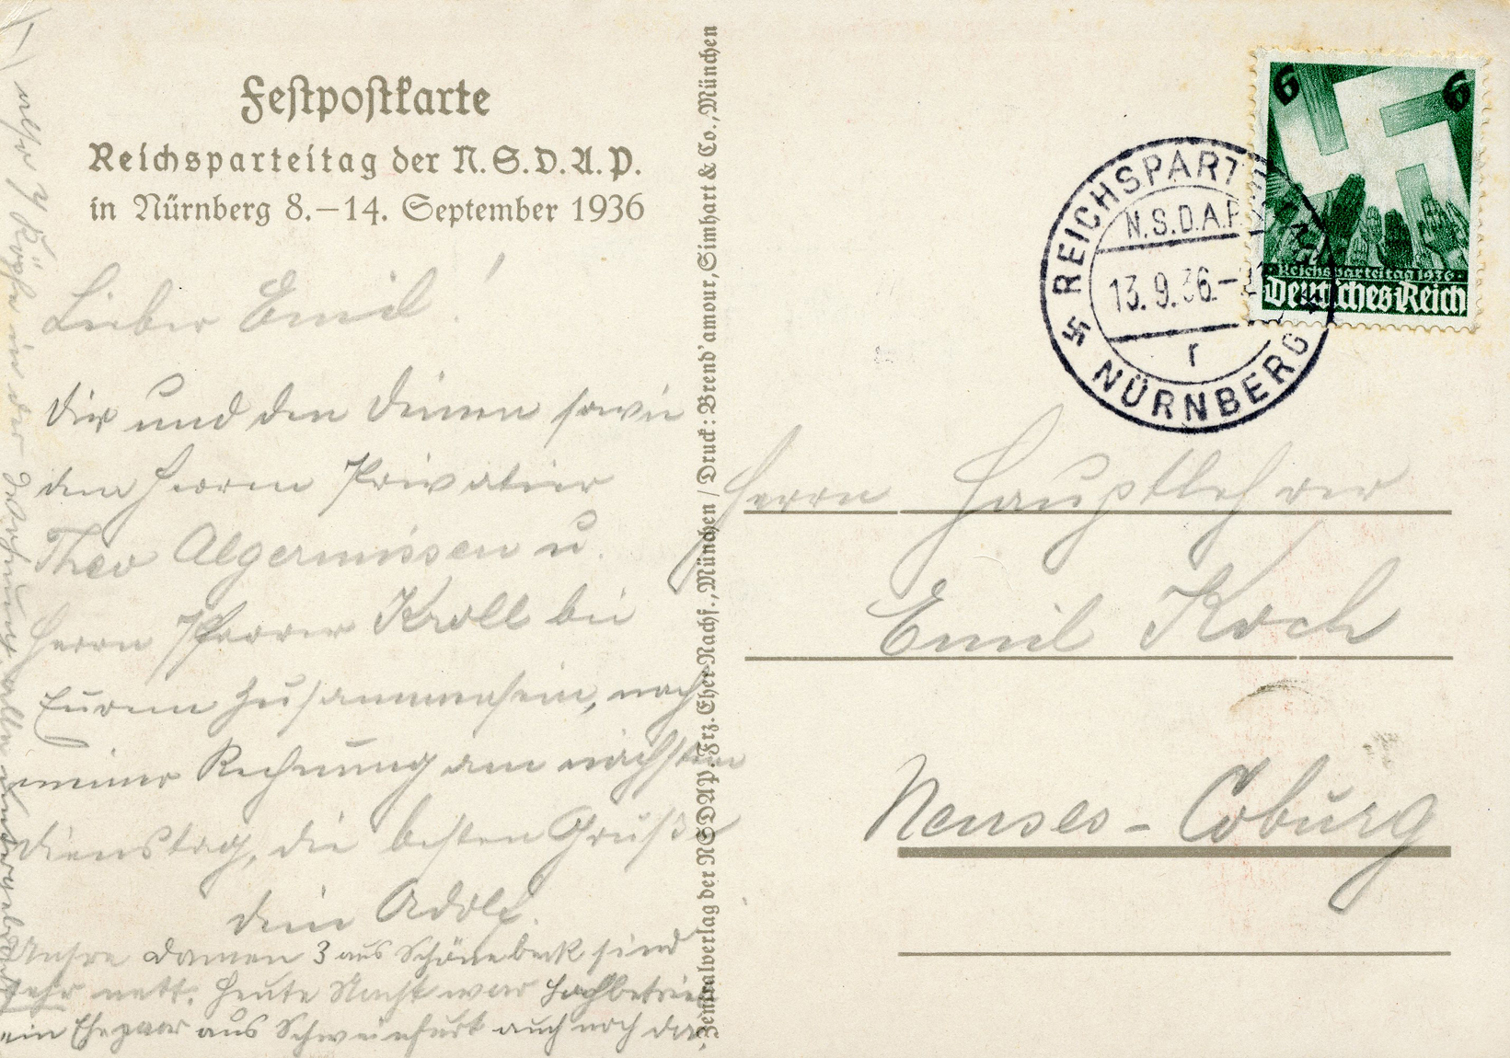 Festpostkarte
Reichsparteitag der N.S.D.A.P.
in Nürnberg 8.–14. September 1936
Lieber Emil!
Dir und den Deinen sowie
den Herren Privatier
Theo Algermissen u.
Herrn Pfarrer Kroll bei
Eurem Zusammensein, nach
meiner Rechnung am nächsten
Dienstag, die besten Grüße
Dein Adolf.
Unsre Damen 3 aus Schönebeck sind
sehr nett. Heute Nacht war Hochbetrieb
ein Ehepaar aus Schweinfurt auch noch da,
Zentralverlag der NSDAP. Frz. Eher Nachf., München / Druck: Brend'amour, Simhart & Co., München
6 6
Reichsparteitag 1936
Deutsches Reich
REICHSPART
N.S.D.A.P.
13.9.36.–
r
NÜRNBERG
Herrn Hauptlehrer
Emil Koch
Neuses - Coburg